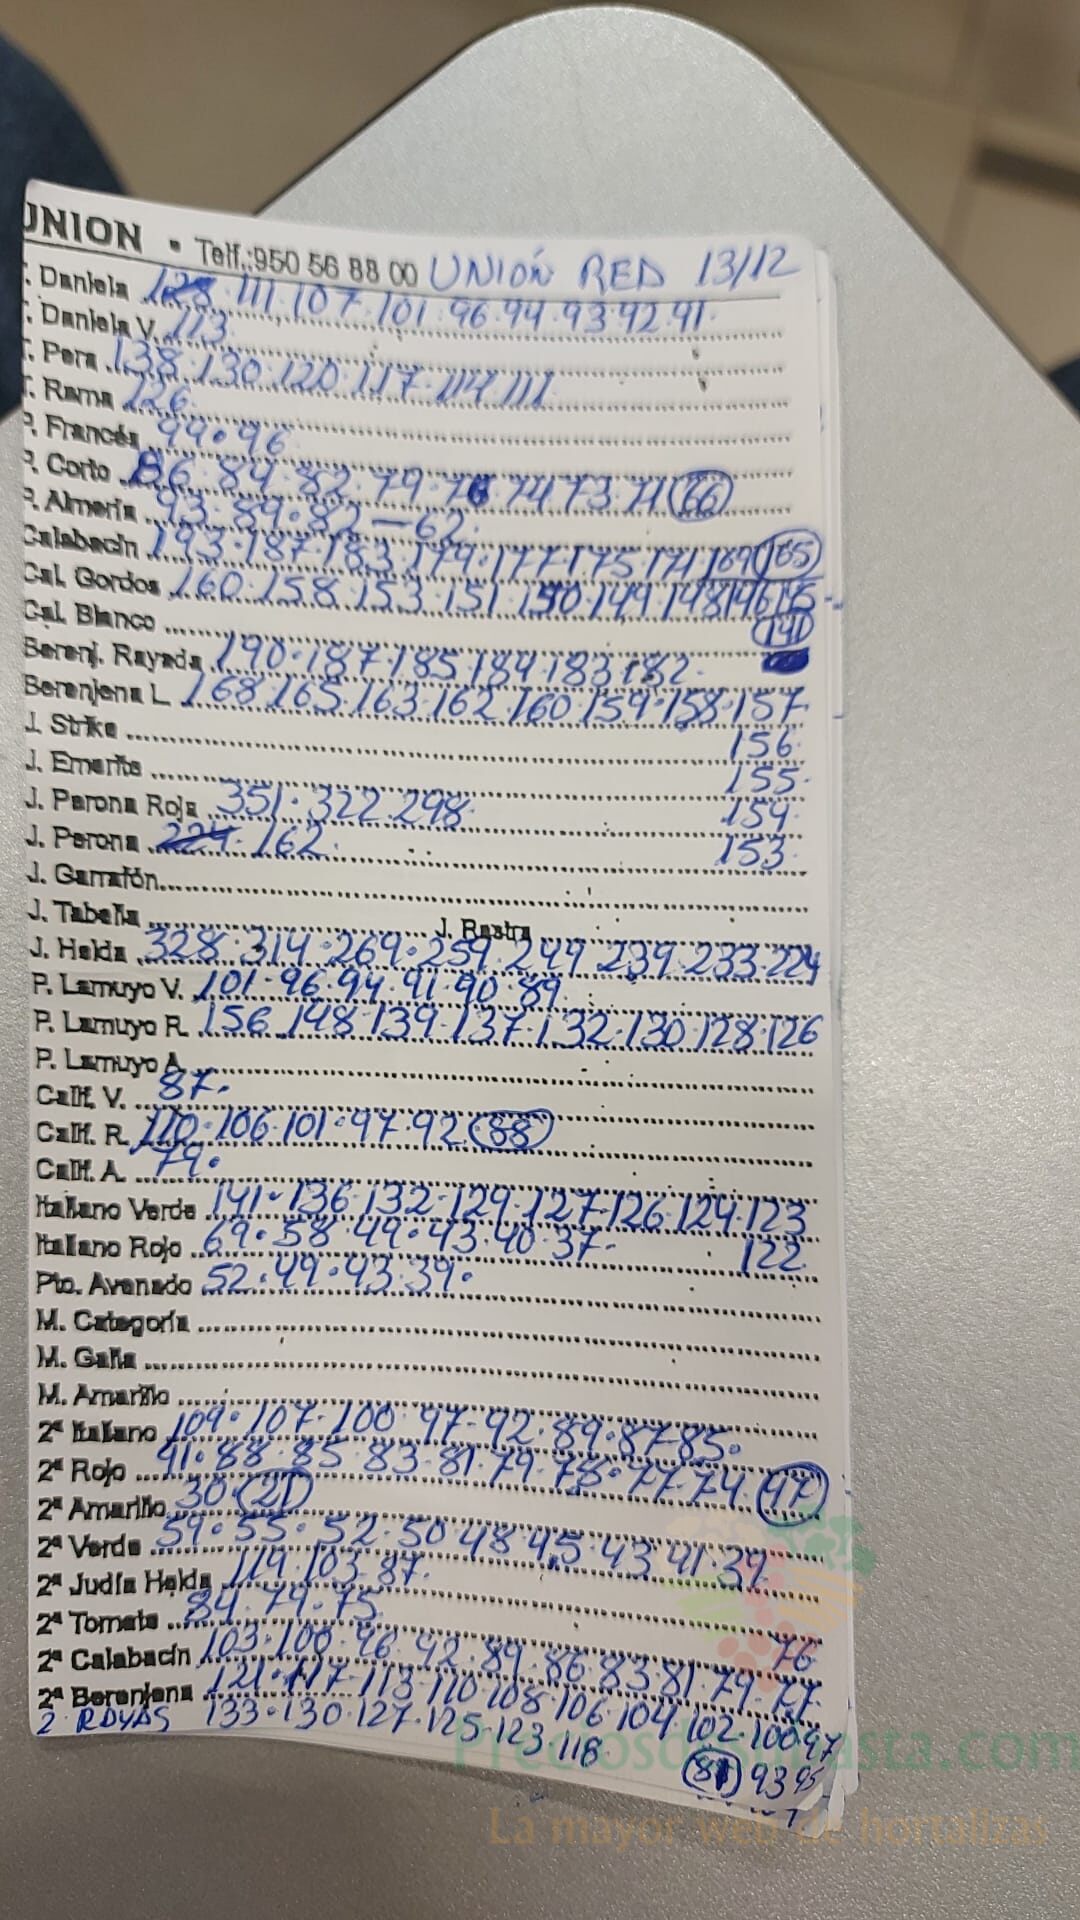 UNION • Telf.:950 56 88 00 UNIÓN RED 13/12
T. Daniela 128 · 111 · 107 · 101 · 96 · 94 · 93 · 92 · 91 ·
T. Daniela V. 113
T. Pera 138 · 130 · 120 · 117 · 114 · 111
T. Rama 126
P. Francés 99 · 96
P. Corto 86 · 84 · 82 · 79 · 76 · 74 73 · 71 (66)
P. Almería 93 · 89 · 82 — 62
Calabacín 193 · 187 · 183 · 179 · 177 · 175 · 171 169 (165)
Cal. Gordos 160 · 158 · 153 · 151 · 150 · 149 · 148 146
Cal. Blanco (141)
Berenj. Rayada 190 · 187 · 185 · 184 · 183 · 182 ·
Berenjena L. 168 · 165 · 163 · 162 · 160 · 159 · 158 · 157
J. Strike 156
J. Emerite 155
J. Perona Roja 351 · 322 298 154
J. Perona 224 · 162 153
J. Garrafón
J. Tabella J. Rastra
J. Helda 328 · 314 · 269 · 259 · 249 239 · 233 · 224
P. Lamuyo V. 101 · 96 · 94 · 91 · 90 · 89
P. Lamuyo R. 156 148 · 139 · 137 · 132 · 130 · 128 · 126
P. Lamuyo A.
Calif. V. 87 ·
Calif. R. 110 · 106 · 101 · 97 · 92 (88)
Calif. A. 79 ·
Italiano Verde 141 · 136 · 132 · 129 · 127 · 126 · 124 · 123
Italiano Rojo 69 · 58 · 49 · 43 · 40 · 37 · 122
Pto. Avanado 52 · 49 · 43 · 39 ·
M. Categoría
M. Galia
M. Amarillo
2ª Italiano 109 · 107 · 100 · 97 · 92 · 89 · 87 · 85 ·
2ª Rojo 91 · 88 · 85 · 83 · 81 · 79 · 78 · 77 · 74 · (47)
2ª Amarillo 30 · (21)
2ª Verde 59 · 55 · 52 · 50 48 · 45 · 43 41 · 39
2ª Judía Helda 119 · 103 · 87 ·
2ª Tomate 84 · 79 · 75 76
2ª Calabacín 103 · 100 · 96 · 92 · 89 · 86 · 83 · 81 · 79 · 77
2ª Berenjena 121 · 117 · 113 · 110 · 108 · 106 · 104 102 · 100 97
2 RAYAS 133 · 130 · 127 · 125 · 123 118 (81) 93 95
Preciosdesubasta.com
La mayor web de hortalizas